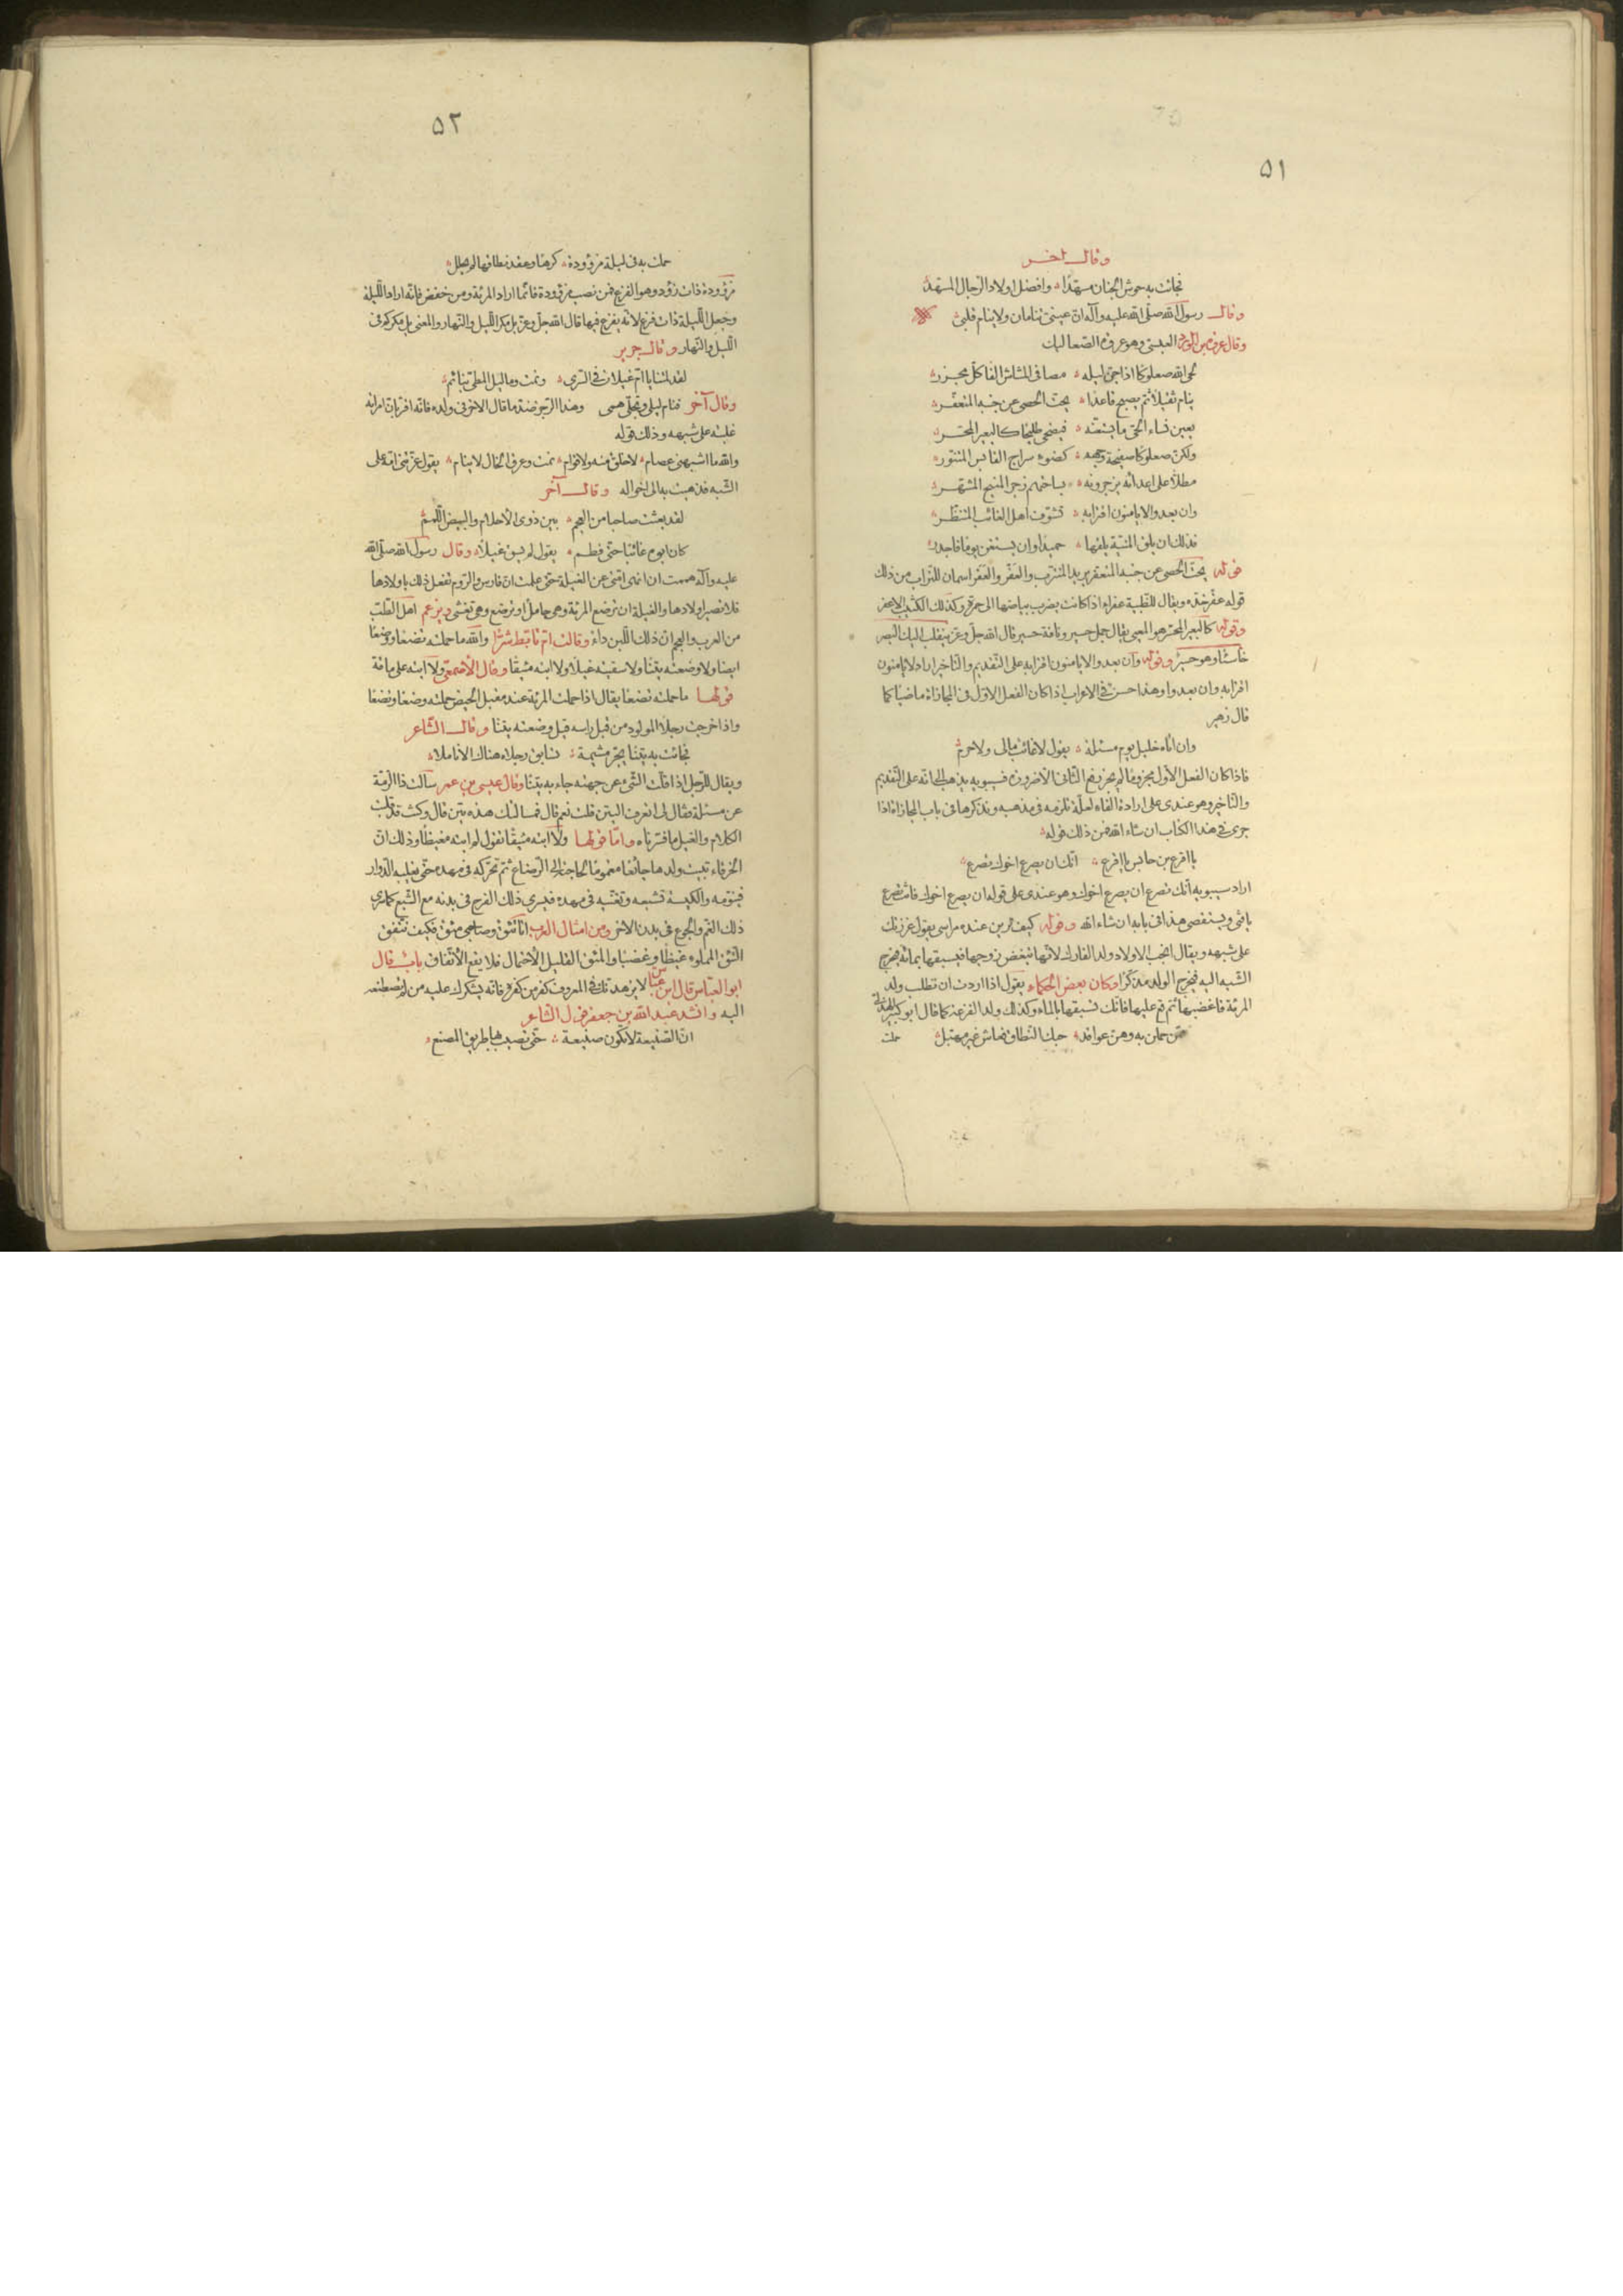 ۵۱
وقال آخر
فجائت به حوش الجنان مسهّدًا وافضل اولاد الرجال المسهّد
وقال رسول الله صلّى الله عليه وآله انّ عينىّ تنامان ولا ينام قلبى
وقال عروة بن الورد العبسى وهو عروة الصّعاليك
لحى الله صعلوكا اذا جنّ ليله مصافى المشاش الفا كلّ مجزر
ينام ثقيلا ثم يصبح قاعدًا يحتّ الحصى عن جنبه المتعفّر
يعين نساء الحىّ ما يستعنّه فيضحى طليحا كالبعير المحسّر
ولكنّ صعلوكا صفيحة وجهه كضوء سراج القابس المتنوّر
مطلّا على اعدائه يزجرونه بساحتهم زجر المنيح المشهّر
وان بعدوا لا يامنون اقترابه تشوّف اهل الغائب المتنظّر
فذلك ان يلق المنيّة يلقها حميدًا وان يستغن يوما فاجدر
قوله يحتّ الحصى عن جنبه المتعفّر يريد المتترّب والعَفْر والعَفَر اسمان للتراب من ذلك
قوله عفّر خدّه ويقال للظبية عفراء اذا كانت يضرب بياضها الى حمرة وكذلك الكثيب الاعفر
وقوله كالبعير المحسّر هو المعيى يقال جمل حسير وناقة حسير قال الله جلّ وعزّ ينقلب اليك البصر
خاسئا وهو حسير وقوله وان بعدوا لا يامنون اقترابه على التّقديم والتّأخير اراد لا يامنون
اقترابه وان بعدوا وهذا حسن فى الاعراب اذا كان الفعل الاوّل فى المجازاة ماضيا كما
قال زهير
وان اتاه خليل يوم مسئلة يقول لا غائب مالى ولا حرم
فاذا كان الفعل الأول مجزوما لم يجز رفع الثّانى الّا ضرورة فسيبويه يذهب الى انّه على التّقديم
والتّأخير وهو عندى على ارادة الفاء لعلّة تلزمه فى مذهبه ونذكرها فى باب المجازاة اذا
جرى فى هذا الكتاب ان شاء الله فمن ذلك قوله
يا اقرع بن حابس يا اقرع انّك ان يصرع اخوك تصرع
اراد سيبويه انّك تصرع ان يصرع اخوك وهو عندى على قوله ان يصرع اخوك فانت تصرع
يا فتى ويستقصى هذا فى بابه ان شاء الله وقوله كيف ترين عنده مراسى يقول غززتك
على شبهه ويقال انجب الاولاد ولد الفارك لأنّها تبغض زوجها فيسبقها بمائه فيخرج
الشبه اليه فيخرج الولد مذكّرا وكان بعض الحكماء يقول اذا اردت ان تطلب ولد
المرئة فاغضبها ثم قع عليها فانّك تسبقها بالماء وكذلك ولد الفزعة كما قال ابو كبير الهذلى
ممّن حملن به وهنّ عواقد حبك النّطاق فعاش غير مهبّل
حملت
۵۲
حملت به فى ليلة مزؤودة كرها وعقد نطاقها لم يحلل
مزؤودة ذات زؤد وهو الفزع فمن نصب مزؤودة فانّما اراد المرئة ومن خفض فانّه اراد اللّيلة
وجعل اللّيلة ذات فزع لأنّه يفزع فيها قال الله جلّ وعزّ بل مكر اللّيل والنّهار والمعنى بل مكركم فى
اللّيل والنّهار وقال جرير
لقد لمتنا يا امّ غيلان فى السّرى ونمت وما ليل المطىّ بنائم
وقال آخر فنام ليلى وتجلّى همّى وهذا الرّجز ضدّ ما قال الاخر فى ولده فانّه اقرّ بانّ امرأته
غلبته على شبهه وذلك قوله
والله ما اشبهنى عصام لا خلق منه ولا قوام نمت وعرق الخال لا ينام يقول عزّتنى امّه على
الشّبه فذهبت به الى اخواله وقال آخر
لقد بعثت صاحبا من العجم بين ذوى الأحلام والبيض اللّمم
كان ابوه غائبا حتّى فطم يقول لم يسق غيلا وقال رسول الله صلّى الله
عليه وآله هممت ان انهى امّتى عن الغيلة حتّى علمت انّ فارس والرّوم تفعل ذلك باولادها
فلا تضير اولادها والغيلة ان ترضع المرئة وهى حامل او ترضع وهى تغشى ويزعم اهل الطّبّ
من العرب والعجم انّ ذلك اللّبن داء وقالت امّ تأبّط شرّا والله ما حملته تضعا ووضعا
ايضا ولا وضعته يتنا ولا سقيته غيلا ولا ابتّه مئيقا وقال الأصمعى ولا ابتّه على مأقة
قولها ما حملته تضعا يقال اذا حملت المرئة عند مقبل الحيض حملته وضعا وتضعا
واذا خرجت رجلا المولود من قبل راسه قيل وضعته يتنا وقال الشّاعر
فجائت به يتنا يجرّ مشيمة تسابق رجلاه هناك الأناملا
ويقال للرّجل اذا قلب الشّىء عن جهته جاء به يتنا وقال عيسى بن عمر سألت ذا الرّمّة
عن مسئلة فقال لى اتعرف اليتن قلت نعم قال فمسألتك هذه يتن قال وكنت قد قلبت
الكلام والغيل ما فسّرناه وامّا قولها ولا ابتّه مئيقا تقول لم ابته مغيظا وذلك انّ
الخرقاء تبيت ولدها جائعا مغموما لحاجته الى الرّضاع ثمّ تحرّكه فى مهده حتّى يغلبه الدّوار
فينوّمه والكيسة تشبعه وتغنّيه فى مهده فيسرى ذلك الفرح فى بدنه مع الشّبع كما يسرى
ذلك الغمّ والجوع فى بدن الآخر ومن امثال العرب انا تئق وصاحبى مئق فكيف نتّفق
التّئق المملوء غيظا وغضبا والمئق القليل الأحتمال فلا يقع الأتّفاق باب قال
ابو العبّاس قال ابن عبّاس لا يزهدنّك فى المعروف كفر من كفره فانّه يشكرك عليه من لم تصطنعه
اليه وانشد عبد الله بن جعفر قول الشّاعر
انّ الصّنيعة لا تكون صنيعة حتّى تصيب بها طريق المصنع